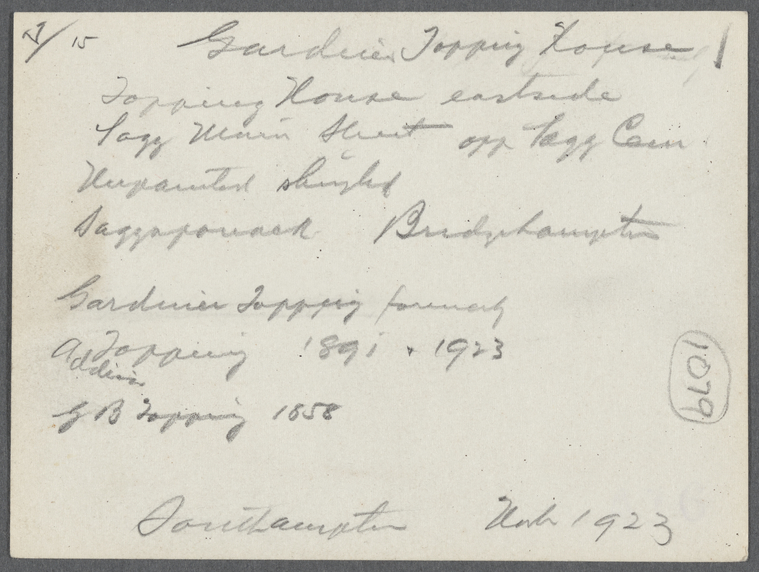 15
Gardiner Topping House
Topping House eastside
Sagg Main Street opp Sagg Cem
Unpainted shingled
Saggaponack Bridgehampton
Gardiner Topping formerly
A Topping 1891 . 1923
Addison
G B Topping 1858
Southampton 1923
1079